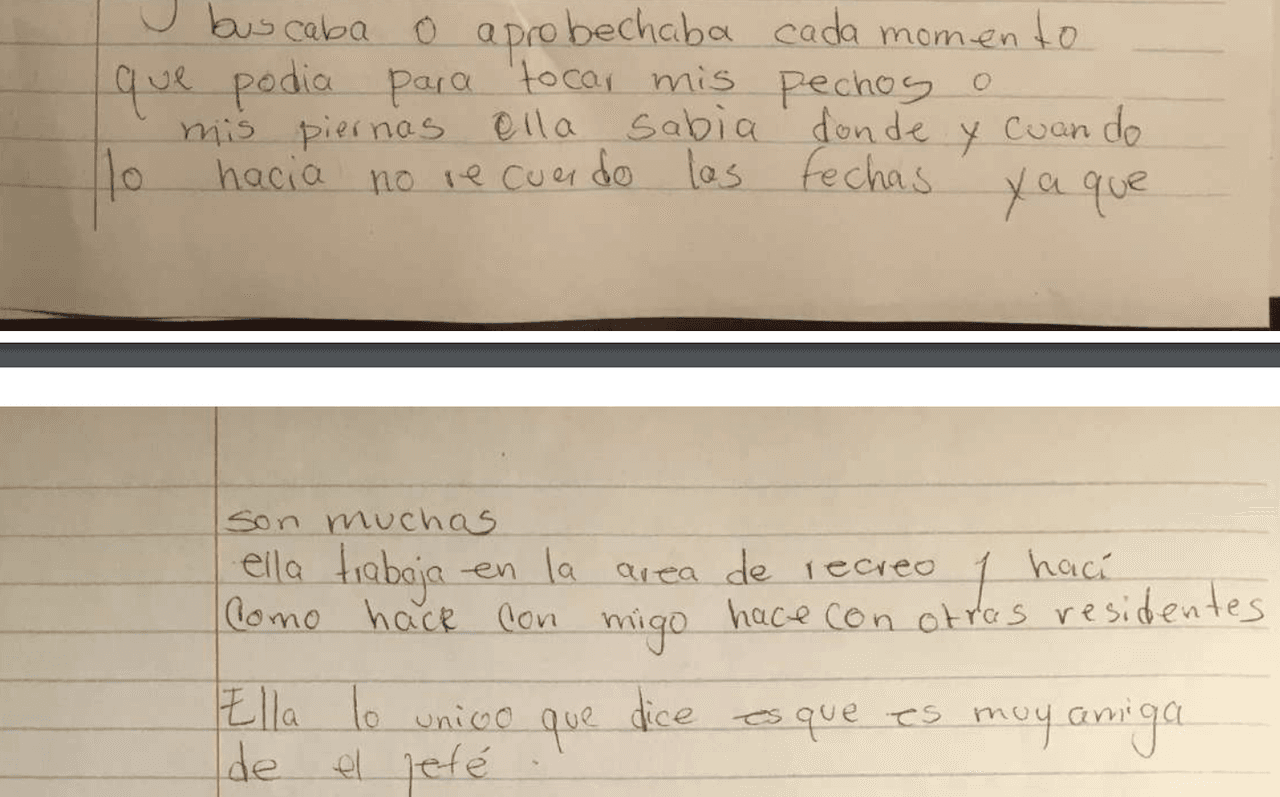 buscaba o aprobechaba cada momento
que podia para tocar mis pechos o
mis piernas ella sabia donde y cuando
lo hacia no recuerdo las fechas ya que
son muchas
ella trabaja en la area de recreo y hací
Como hace con migo hace con otras residentes
Ella lo unico que dice es que es muy amiga
de el jefé.